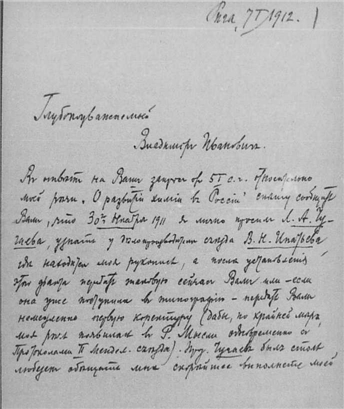 Рига, 7/I 1912.
Глубокоуважаемый
Владимир Иванович.
В ответ на Ваш запрос от 5 I с.г. относительно
моей речи „О развитии химии в России" спешу сообщить
Вам, что 30го Ноября 1911 я лично просил Л. А. Чу-
гаева, узнать у делопроизводителя съезда В. Н. Ипатьева
где находится моя рукопись, а после установления
этого факта передать таковую сейчас Вам или – если
она уже поступила в типографию – передать Вам
немедленно первую корректуру (дабы, по крайней мере,
моя речь появилась в Р. Мысли одновременно с
Протоколами II Мендел. съезда). Проф. Чугаев был столь
любезен обещать мне скорейшее выполнение моей